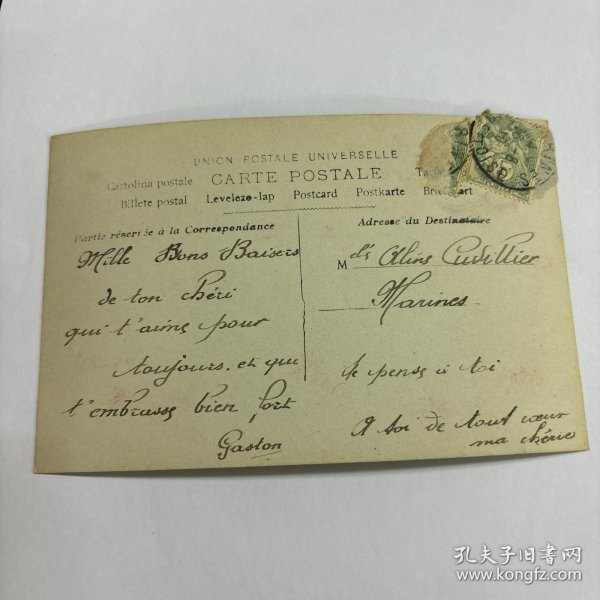 UNION POSTALE UNIVERSELLE
CARTE POSTALE
Cartolina postale
Billete postal Levelezo-lap Postcard Postkarte
Partie réservée à la Correspondance
Mille Bons Baisers
de ton chéri
qui t'aime pour
toujours. et qui
t'embrasse bien fort
Gaston
Adresse du Destinataire
M elle Aline Cuvillier
Marines
Je pense à toi
A toi de tout cœur
ma chérie
孔夫子旧书网
www.kongfz.com